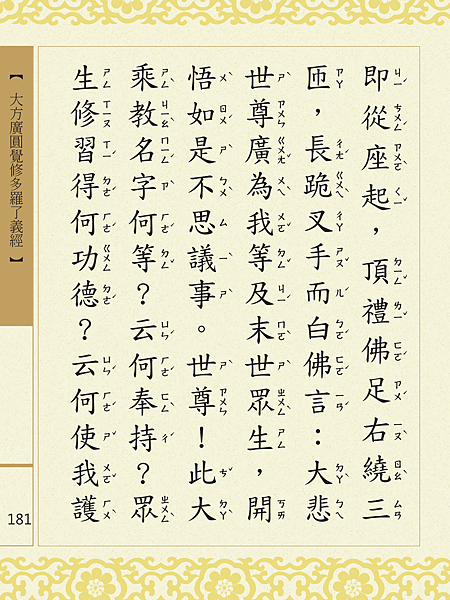 即從座起，頂禮佛足右繞三
匝，長跪叉手而白佛言：大悲
世尊廣為我等及末世眾生，開
悟如是不思議事。世尊！此大
乘教名字何等？云何奉持？眾
生修習得何功德？云何使我護
【大方廣圓覺修多羅了義經】
181